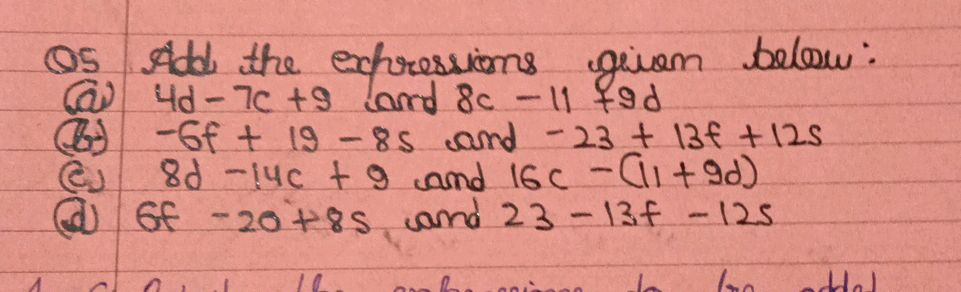 Q5 Add the expressions given below:
(a) 4d - 7c + 9 and 8c - 11 + 9d
(b) -6f + 19 - 8s and -23 + 13f + 12s
(c) 8d - 14c + 9 and 16c - (11 + 9d)
(d) 6f - 20 + 8s and 23 - 13f - 12s